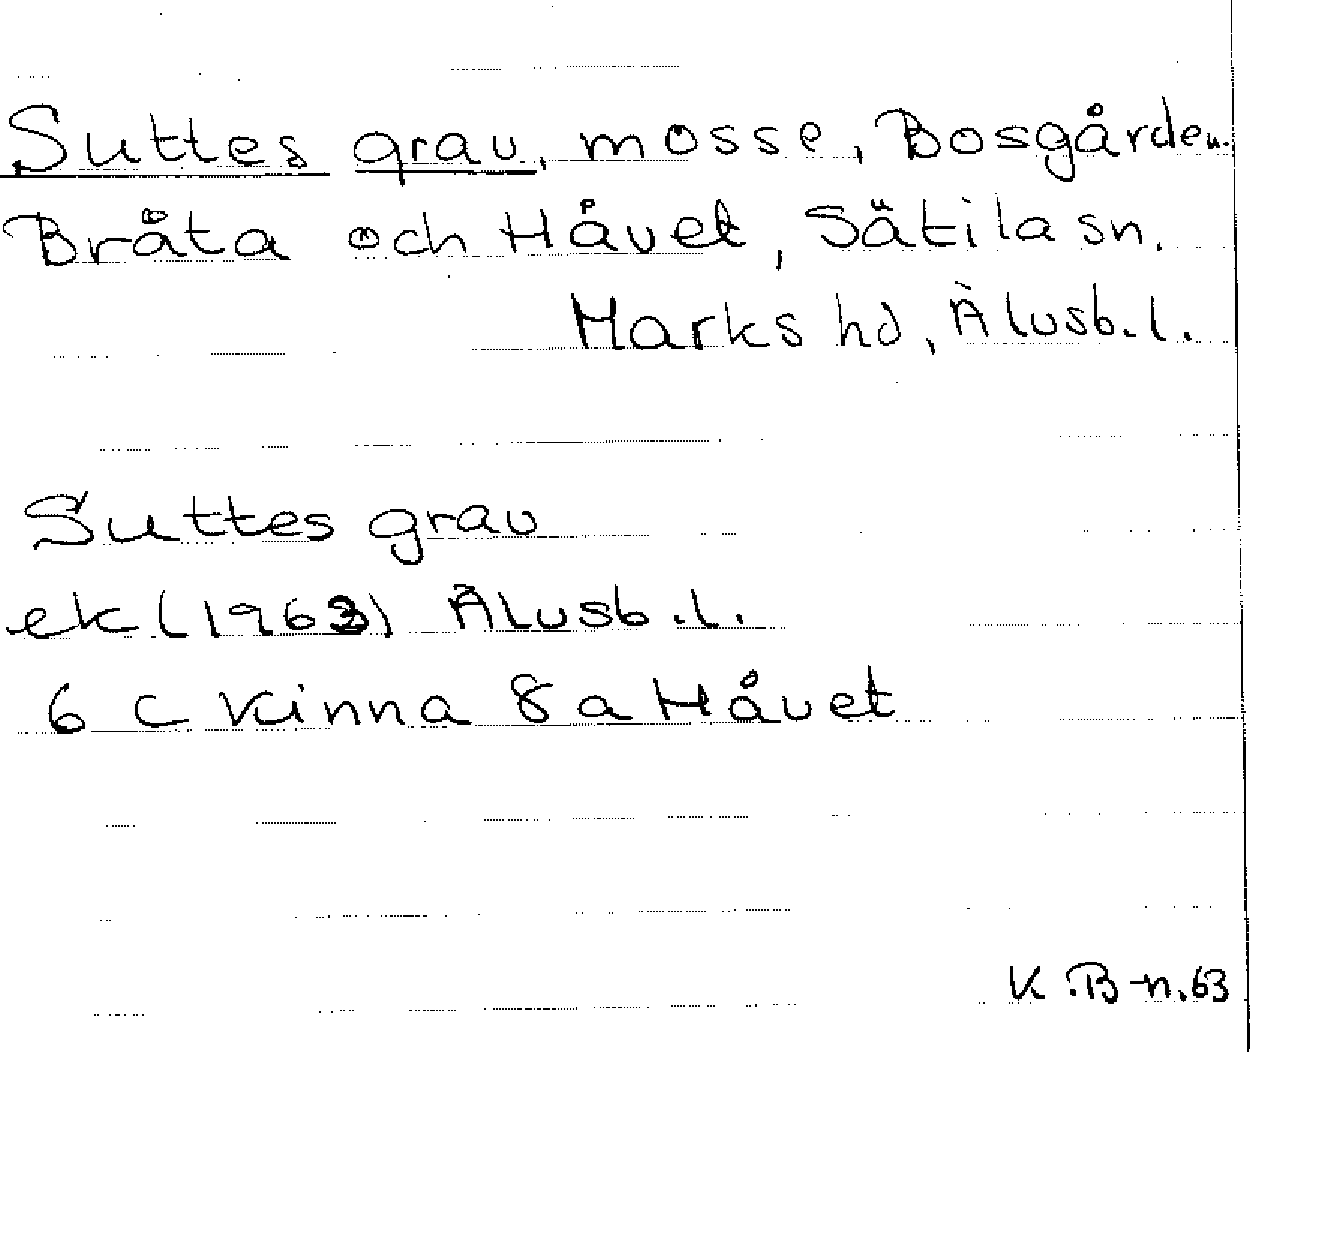 Suttes grav, mosse, Bosgården.
Bråta och Håvet, Sätila sn.
Marks hd, Älvsb.l.
Suttes grav
ek (1963) Älvsb.l.
6 C Kinna 8 a Håvet
K.B-n.63